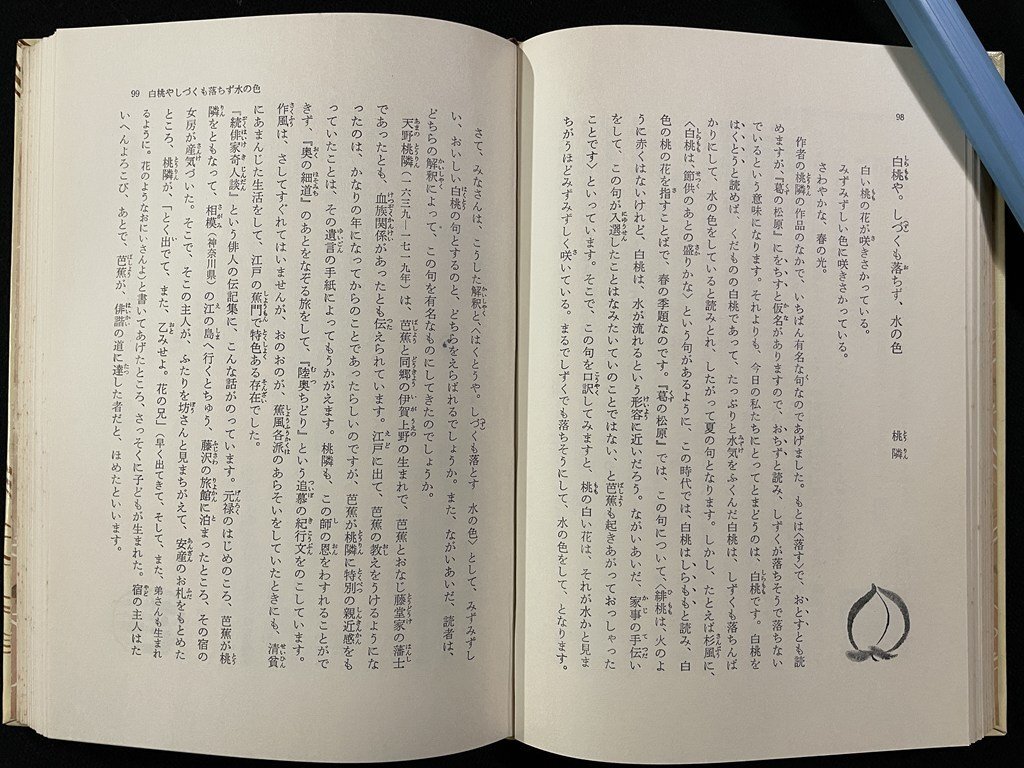 98
白桃や。しづくも落ちず、水の色
桃隣
白い桃の花が咲きさかっている。
みずみずしい色に咲きさかっている。
さわやかな、春の光。
作者の桃隣の作品のなかで、いちばん有名な句なのであげました。もとは〈落す〉で、おとすとも読
めますが『葛の松原』にをちすと仮名がありますので、おちずと読み、しずくが落ちそうで落ちない
でいるという意味になります。それよりも、今日の私たちにとってとまどうのは、白桃です。白桃を
はくとうと読めば、くだもの白桃であって、たっぷりと水気をふくんだ白桃は、しずくも落ちんば
かりにして、水の色をしていると読みとれ、したがって夏の句となります。しかし、たとえば杉風に、
〈白桃は、節供のあとの盛りかな〉という句があるように、この時代では、白桃はしらももと読み、白
色の桃の花を指すことばで、春の季題なのです。『葛の松原』では、この句について、〈緋桃は、火のよ
うに赤くはないけれど、白桃は、水が流れるという形容に近いだろう。ながいあいだ、家事の手伝い
をして、この句が入選したことはなみたいていのことではない、と芭蕉も起きあがっておっしゃった
ことです〉といっています。そこで、この句を口訳してみますと、桃の白い花は、それが水かと見ま
ちがうほどみずみずしく咲いている。まるでしずくでも落ちそうにして、水の色をして、となります。
99 白桃やしづくも落ちず水の色
さて、みなさんは、こうした解釈と、〈はくとうや。しづくも落とす 水の色〉として、みずみずし
い、おいしい白桃の句とするのと、どちらをえらばれるでしょうか。また、ながいあいだ、読者は、
どちらの解釈によって、この句を有名なものにしてきたのでしょうか。
天野桃隣（一六三九〜一七一九年）は、芭蕉と同郷の伊賀上野の生まれで、芭蕉とおなじ藤堂家の藩士
であったとも、血族関係があったとも伝えられています。江戸に出て、芭蕉の教えをうけるようにな
ったのは、かなりの年になってからのことであったらしいのですが、芭蕉が桃隣に特別の親近感をも
っていたことは、その遺言の手紙によってもうかがえます。桃隣も、この師の恩をわすれることがで
きず、『奥の細道』のあとをなぞる旅をして、『陸奥ちどり』という追慕の紀行文をのこしています。
作風は、さしてすぐれてはいませんが、おのおのが、蕉風各派のあらそいをしていたときにも、清貧
にあまんじた生活をして、江戸の蕉門で特色ある存在でした。
『続俳家奇人談』という俳人の伝記集に、こんな話がのっています。元禄のはじめのころ、芭蕉が桃
隣をともなって、相模（神奈川県）の江の島へ行くとちゅう、藤沢の旅館に泊まったところ、その宿の
女房が産気づいた。そこで、そこの主人が、ふたりを坊さんと見まちがえて、安産のお札をもとめた
ところ、桃隣が、「とく出でて、また、乙みせよ。花の兄」（早く出てきて、そして、また、弟さんも生まれ
るように。花のようなおにいさんよ）と書いてあげたところ、さっそくに子どもが生まれた。宿の主人はた
いへんよろこび、あとで、芭蕉が、俳諧の道に達した者だと、ほめたといいます。